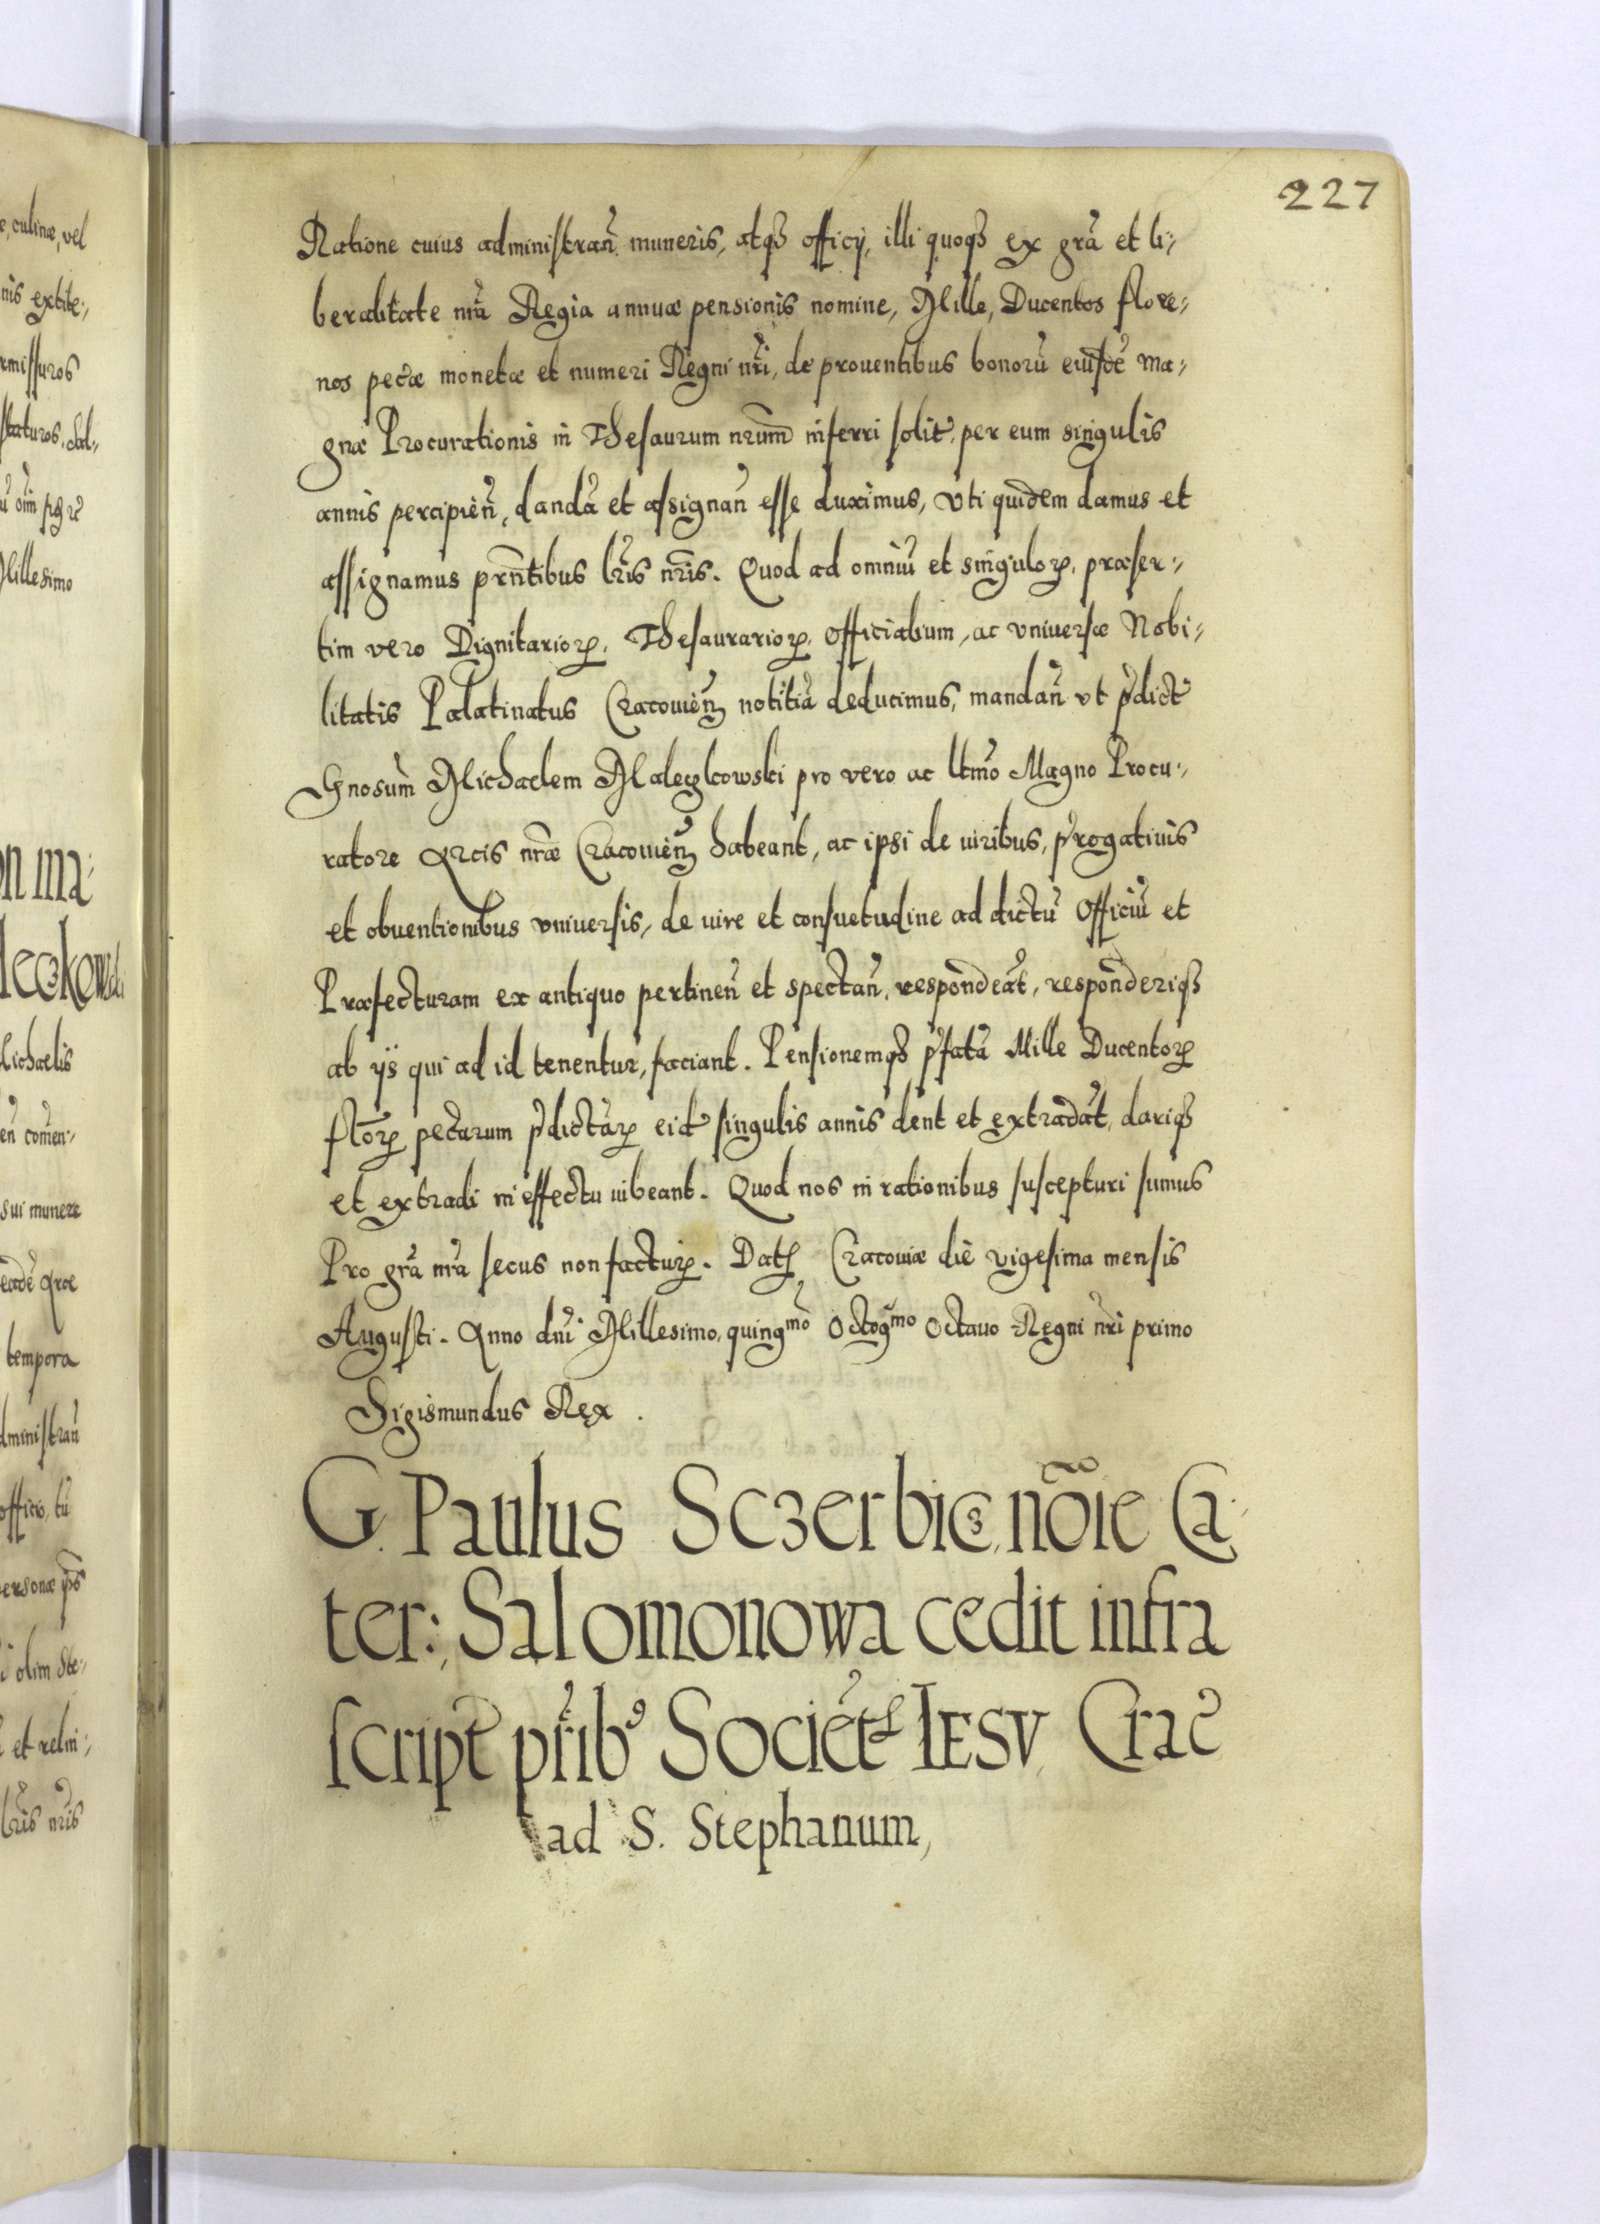 227
Ratione cuius administran̄ muneris, atqȝ officij, illi quoqȝ ex grã et li-
beralitate nrã Regia annuæ pensionis nomine, Mille, Ducentos flore-
nos pecũæ monetæ et numeri Regni nr̃i, de prouentibus bonorũ eiusdẽ Ma-
gnæ Procurationis in Thesaurum nrum̃ inferri solit̃ per eum singulis
annis percipien̄, dandã et assignan̄ esse duximus, Vti quidem damus et
assignamus prñtibus lr̃is nr̃is. Quod ad omniũ et singuloꝝ, præser-
tim vero Dignitarioꝝ, Thesaurarioꝝ, Officialium, ac vniuersæ Nobi-
litatis Palatinatus Cracouien̄ notitiã deducimus, mandan̄ vt p̃dict̃
Gnosum̃ Michaelem Maleczkowski pro vero ac ltm̃o Magno Procu-
ratore Arcis nr̃æ Cracouien̄ habeant, ac ipsi de viribus, p̃rogatiuis
et obuentionibus vniuersis, de iure et consuetudine ad dictũ Officiũ et
Præfecturam ex antiquo pertinen̄ et spectan̄, respondeãt, responderiqȝ
ab ijs qui ad id tenentur, faciant. Pensionemqȝ p̃fatã Mille Ducentoꝝ
flor̃ꝝ pecũarum p̃dictãꝝ eid̃ singulis annis dent et extradãt, dariqȝ
et extradi in effectu iubeant. Quod nos in rationibus suscepturi sumus
Pro grã nrã secus non facturi. Dat Cracouiæ die vigesima mensis
Augusti. Anno dn̄i Millesimo, quingmo Octogmo Octauo Regni nr̃i primo
Sigismundus Rex.
G. Paulus Sczerbic, nõie Ca-
ter: Salomonowa cedit infra
script pr̃ib⁹ Societ IESV, Crac
ad S. Stephanum,